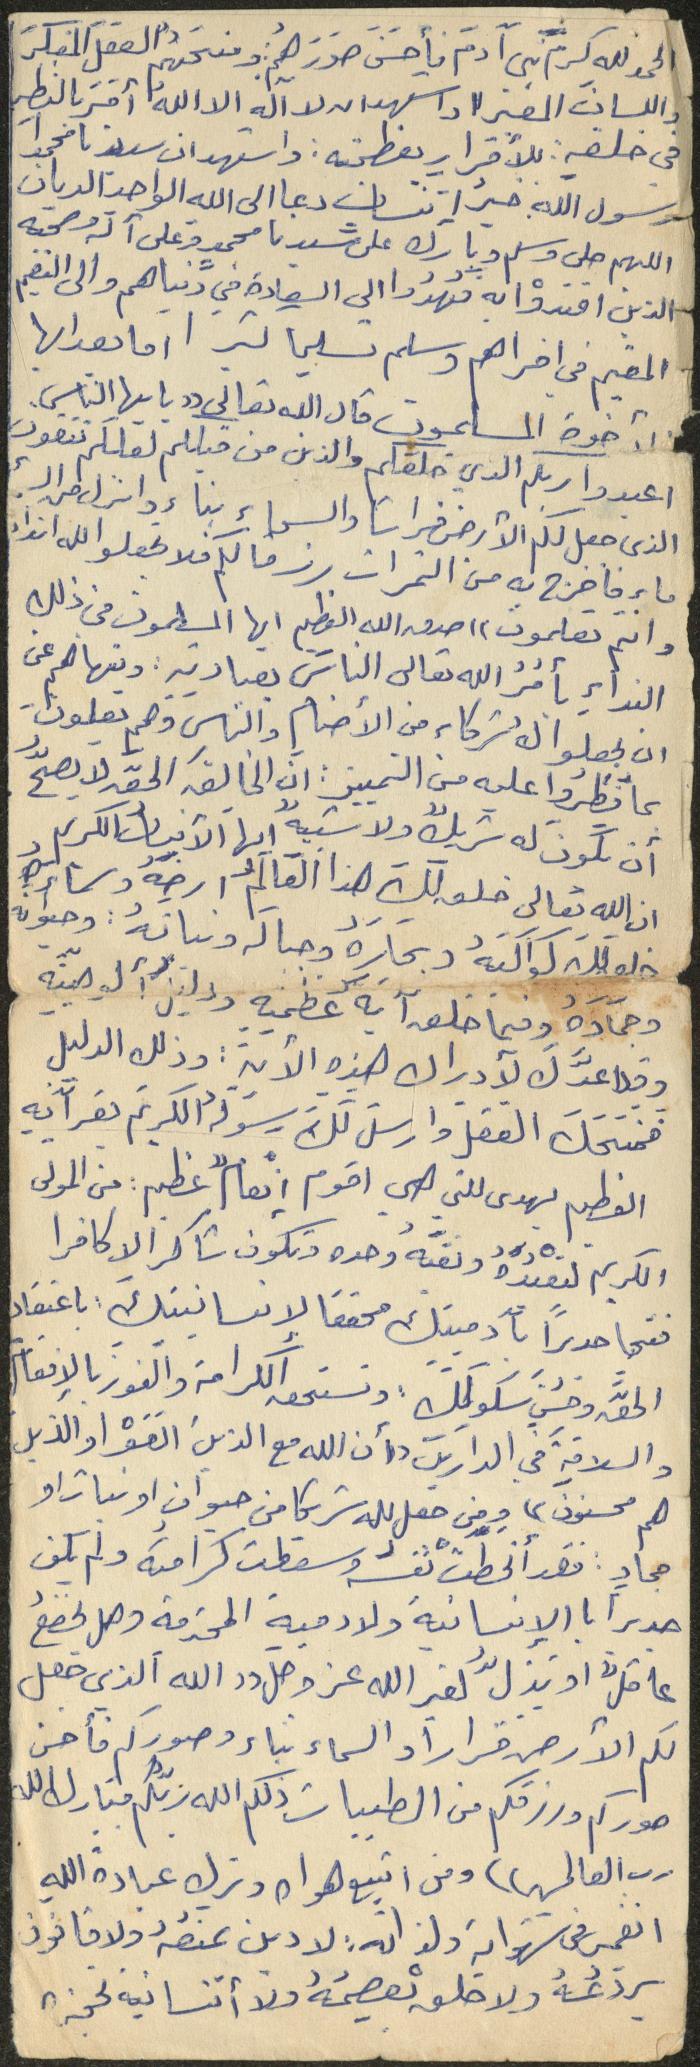 الحمد لله كرم بني آدم فأحسن صورهم: ومنحهم العقل المفكر
واللسان المعبر واشهد ان لا آله الا الله أقر بالنظر
في خلقه: للأقرار بعظمته: واشهد ان سيدنا محمدا
رسول الله خير إنسان دعا الى الله الواحد الديان
اللهم صلى وسلم وبارك على سيدنا محمد وعلى آله وصحبه
الذين اقتدوا به فهدوا الى السعادة في دنياهم والى النعيم
المقيم في اخراهم وسلم تسليما كثيرا اما بعد ايها
الأخوة المسلمون قال الله تعالى ((يا ايها الناس
اعبدوا ربكم الذي خلقكم والذين من قبلكم لعلكم تتقون
الذى جعل لكم الأرض فراشا والسماء بناء وانزل من السماء
ماء فاخرج به من الثمرات رزقا لكم فلا تجعلوا لله اندادا
وانتم تعلمون)) صدق الله العظيم ايها المسلمون في ذلك
النداء يأمر الله تعالى الناس بعبادته: وينهاهم عن
ان يجعلوا له شركاء من الأصنام والناس وهم يعلمون
بما فطروا عليه من التمييز: ان الخالق الحق لا يصح
أن تكون له شريك ولا شبيه ايها الأنسان الكريم
ان الله تعالى خلق لك هذا العالم ارضه وسماءه
خلق لك كواكبه وبحاره وجباله ونباته: وحيوانه
وجماده وفيما خلق آية عظمته ودليل ألوهيته
وقد اعدك لأدراك هذه الأية: وذلك الدليل
فمنحك العقل وارسل لك رسوله الكريم بقرآنه
العظيم يهدى للتي هي اقوم إنعام عظيم: من المولى
الكريم لتعبده وتقيه وحده وتكون شاكرا لا كافرا
فتحيا جديرا بآدميتك محققا لإنسانيتك: باعتقاد
الحق وحسن سلوكك: وتستحق الكرامة والفوز بالإنعام
والسلامة في الدارين ((أن الله مع الذين اتقوا والذين
هم محسنون)) ومن جعل لله شركا من حيوان او نبات او
جماد: فقد أنحطت نفسه وسقطت كرامته ولم يكن
جديرا با الإنسانية ولادمية المحترمة وهل يخضع
عاقل او يذل لغير الله عز وجل ((الله الذي جعل
لكم الأرض قرارا والسماء بناء وصوركم فأحسن
صوركم ورزقكم من الطيبات ذلكم الله ربكم فتبارك الله
رب العالمين)) ومن اتبع هواه وترك عبادة الله
انغمس في شهواته ولذاته: لا دين يمنعه ولا قانون
يردعه ولا خلق يعصمه ولا أنسانية تحجزه